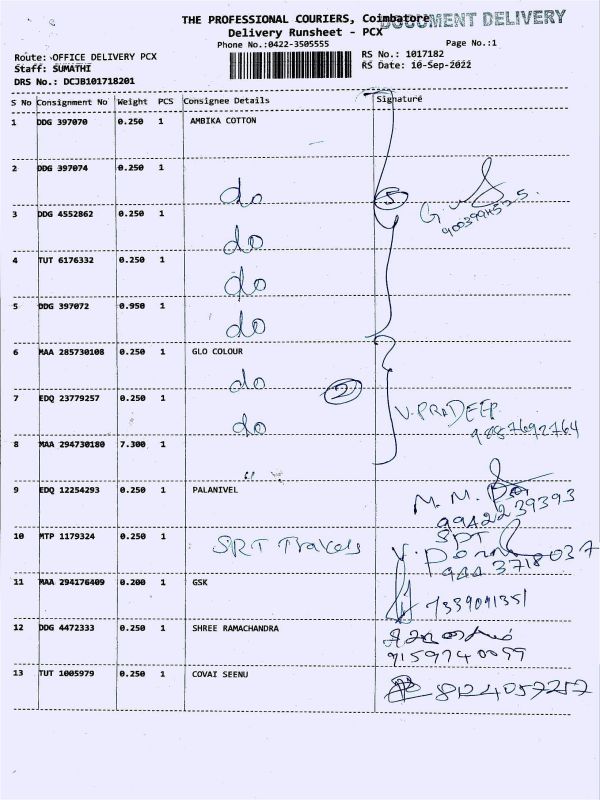 THE PROFESSIONAL COURIERS, Coimbatore
DOCUMENT DELIVERY
Delivery Runsheet - PCX
Phone No.:0422-3505555
Page No.:1
Route: OFFICE DELIVERY PCX
RS No.: 1017182
Staff: SUMATHI
RS Date: 10-Sep-2022
DRS No.: DCJB101718201
S No Consignment No Weight PCS Consignee Details Signature
1 DDG 397070 0.250 1 AMBIKA COTTON
2 DDG 397074 0.250 1
do 5 G.
3 DDG 4552862 0.250 1
do
4 TUT 6176332 0.250 1
do
5 DDG 397072 0.950 1
do
6 MAA 285730108 0.250 1 GLO COLOUR
do 2
7 EDQ 23779257 0.250 1
V. PRADEEP
do 9887692764
8 MAA 294730180 7.300 1
"
9 EDQ 12254293 0.250 1 PALANIVEL
M. M.
9942239393
10 MTP 1179324 0.250 1
SRT Travels
944 3718037
11 MAA 294176409 0.200 1 GSK
7339091351
12 DDG 4472333 0.250 1 SHREE RAMACHANDRA
9159740099
13 TUT 1005979 0.250 1 COVAI SEENU
8124057257